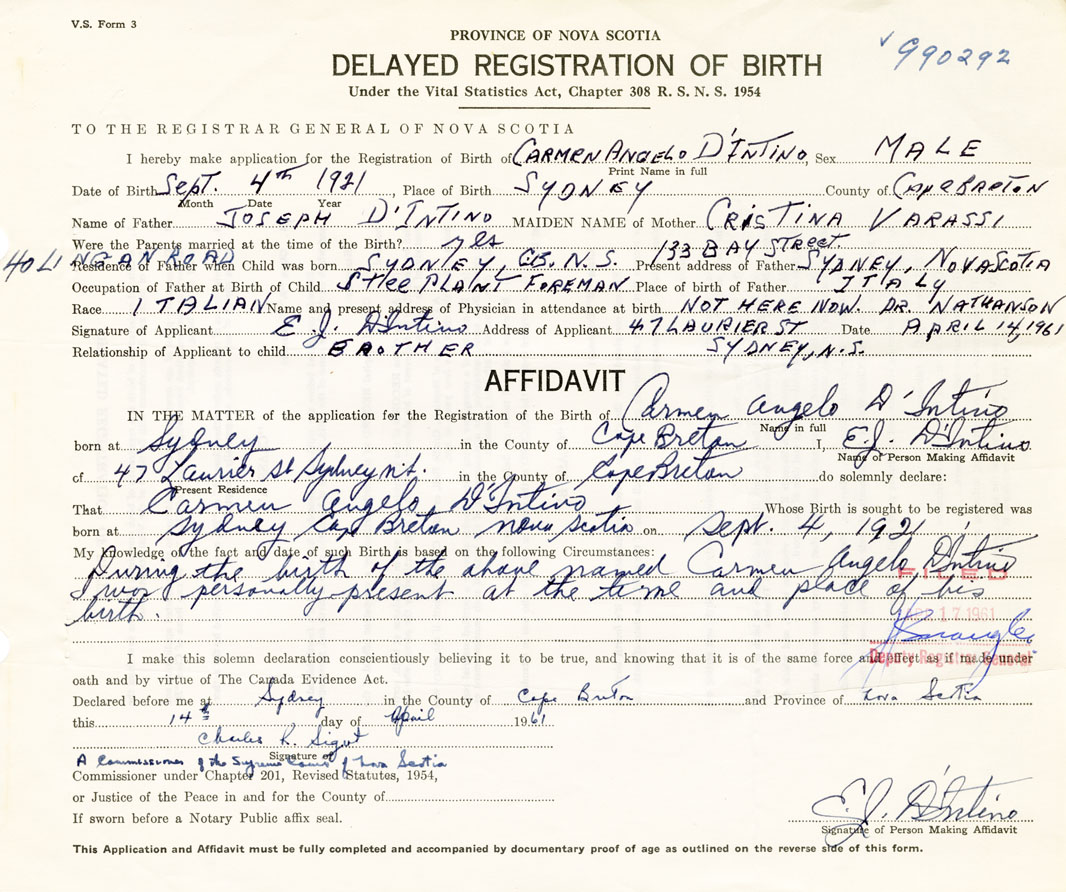 V.S. Form 3
PROVINCE OF NOVA SCOTIA
990292
DELAYED REGISTRATION OF BIRTH
Under the Vital Statistics Act, Chapter 308 R. S. N. S. 1954
TO THE REGISTRAR GENERAL OF NOVA SCOTIA
I hereby make application for the Registration of Birth of CARMEN ANGELO D'INTINO, Sex MALE
Print Name in full
Date of Birth Sept. 4TH 1921, Place of Birth SYDNEY County of CAPE BRETON
Month Date Year
Name of Father JOSEPH D'INTINO MAIDEN NAME of Mother CRISTINA VARASSI
Were the Parents married at the time of the Birth? yes 133 BAY STREET.
40 LINGAN ROAD
Residence of Father when Child was born SYDNEY, C.B. N.S. Present address of Father SYDNEY, NOVA SCOTIA
Occupation of Father at Birth of Child STEEL PLANT FOREMAN Place of birth of Father ITALY
Race ITALIAN Name and present address of Physician in attendance at birth NOT HERE NOW. DR. NATHANSON
Signature of Applicant E. J. D'Intino Address of Applicant 47 LAURIER ST Date APRIL 14, 1961
Relationship of Applicant to child BROTHER SYDNEY, N.S.
AFFIDAVIT
IN THE MATTER of the application for the Registration of the Birth of Carmen Angelo D'Intino
Name in full
born at Sydney in the County of Cape Breton I, E.J. D'Intino
Name of Person Making Affidavit
of 47 Laurier St Sydney N.S. in the County of Cape Breton do solemnly declare:
Present Residence
That Carmen Angelo D'Intino Whose Birth is sought to be registered was
born at Sydney Cape Breton Nova Scotia on Sept. 4, 1921
My Knowledge of the fact and date of such Birth is based on the following Circumstances:
During the birth of the above named Carmen Angelo D'Intino
I was personally present at the time and place of his
birth.
FILED
17 1961
Deputy Registrar General
I make this solemn declaration conscientiously believing it to be true, and knowing that it is of the same force and effect as if made under
oath and by virtue of The Canada Evidence Act.
Declared before me at Sydney in the County of Cape Breton and Province of Nova Scotia
this 14th day of April 1961
Charles R.
Signature of
A Commissioner of the Supreme Court of Nova Scotia
Commissioner under Chapter 201, Revised Statutes, 1954,
or Justice of the Peace in and for the County of
If sworn before a Notary Public affix seal.
E.J. D'Intino
Signature of Person Making Affidavit
This Application and Affidavit must be fully completed and accompanied by documentary proof of age as outlined on the reverse side of this form.